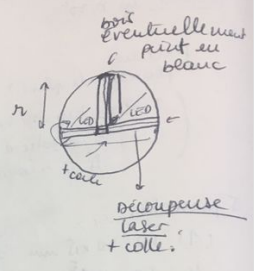 bois
éventuellement
peint en
blanc
r
LED
LED
+ colle
Découpeuse
laser
+ colle.